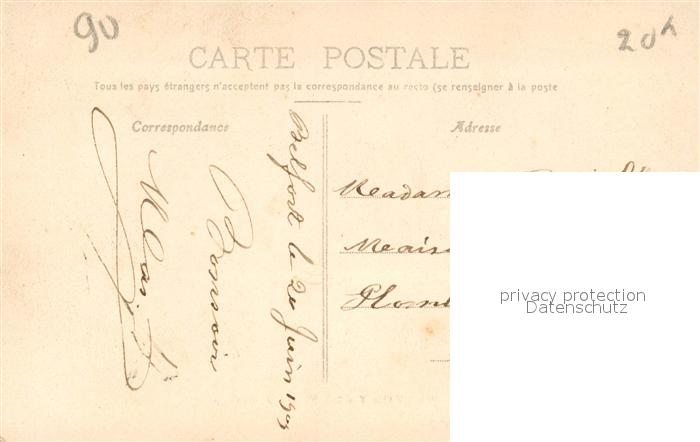 90
20
CARTE POSTALE
Tous les pays étrangers n'acceptent pas la correspondance au recto (se renseigner à la poste
Correspondance
Adresse
Belfort le 20 Juin
Bonsoir
Madam
Mais
privacy protection
Datenschutz